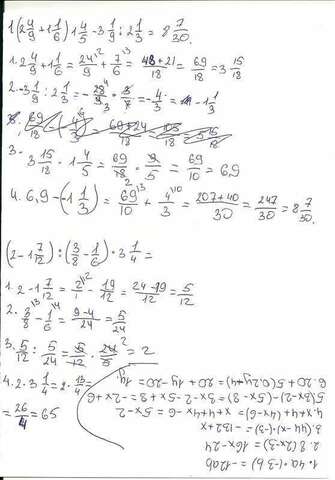 1(2 4/9 + 1 1/6) 1 4/5 - 3 1/9 : 2 1/3 = 8 7/30.
1. 2 4/9 + 1 1/6 = 24/9 + 7/6 = 48+21/18 = 69/18 = 3 15/18
2. -3 1/9 : 2 1/3 = -28/9 · 3/7 = -4/3 = -1 1/3
3. 3 15/18 · 1 4/5 = 69/18 · 9/5 = 69/10 = 6,9
4. 6,9 - (-1 1/3) = 69/10 + 4/3 = 207+40/30 = 247/30 = 8 7/30
(2 - 1 7/12) : (3/8 - 1/6) · 3 1/4 =
1. 2 - 1 7/12 = 2/1 - 19/12 = 24-19/12 = 5/12
2. 3/8 - 1/6 = 9-4/24 = 5/24
3. 5/12 : 5/24 = 5/12 · 24/5 = 2
4. 2 · 3 1/4 = 2 · 13/4
= 26/4 = 65
1. 4a·(-3b) = -12ab
2. 8(2x-3) = 16x-24
3. (-44x)·(-3) = -132x
4. x+4(x-6) = x+4x-6 = 5x-2
5. 3(x-2)-(5x-8) = 3x-2-5x+8 = -2x+6
6. 20+5(0,2y+4) = 20+1y-20=1y